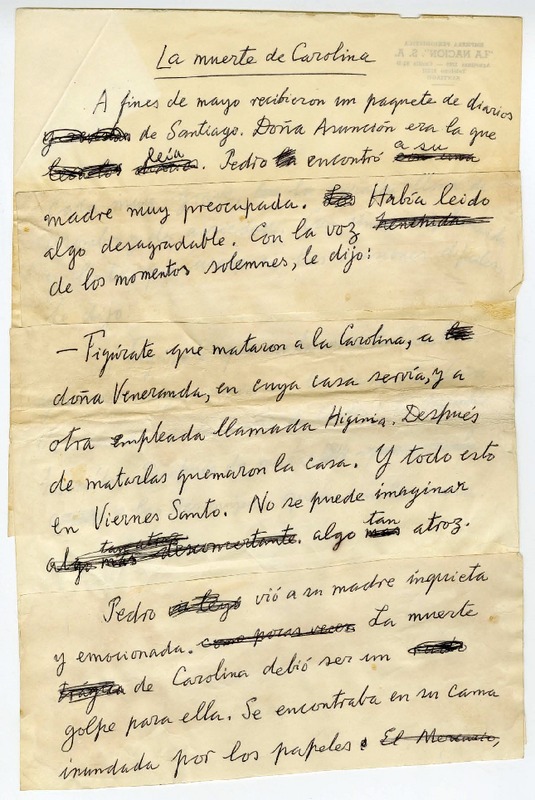 La muerte de Carolina
A fines de mayo recibieron un paquete de diarios
de Santiago. Doña Asunción era la que
leía. Pedro la encontró a su
madre muy preocupada. Había leido
algo desagradable. Con la voz henchida
de los momentos solemnes, le dijo:
— Figúrate que mataron a la Carolina, a la
doña Veneranda, en cuya casa servía, y a
otra empleada llamada Higinia. Después
de matarlas quemaron la casa. Y todo esto
en Viernes Santo. No se puede imaginar
tan atroz tan
algo más desconcertante. algo mas atroz.
Pedro vió a su madre inquieta
y emocionada. como pocas veces La muerte
trágica de Carolina debió ser un
golpe para ella. Se encontraba en su cama
inundada por los papeles. El Mercurio,